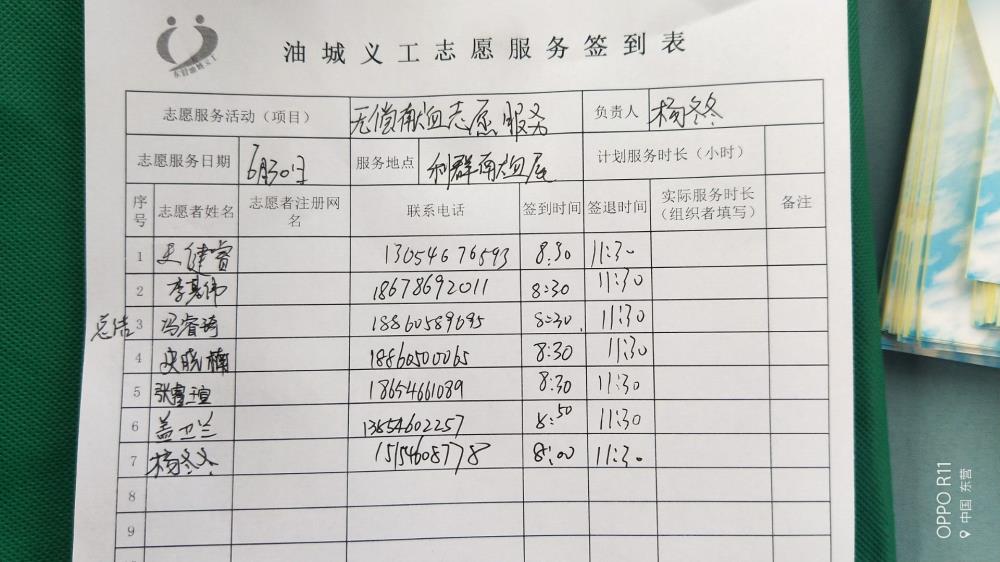 油城义工志愿服务签到表
东营油城义工
志愿服务活动（项目） 无偿献血志愿服务 负责人 杨冬冬
志愿服务日期 6月30日 服务地点 利群献血屋 计划服务时长（小时）
序号 志愿者姓名 志愿者注册网名 联系电话 签到时间 签退时间 实际服务时长（组织者填写） 备注
1 健睿 13054676593 8:30 11:30
2 李景伟 18678692011 8:30 11:30
总结 3 冯睿琦 18860589695 8:30 11:30
4 晓楠 18860500065 8:30 11:30
5 张富瑄 18654661089 8:30 11:30
6 盖卫兰 13854602257 8:50 11:30
7 杨冬冬 15154608778 8:00 11:30
8
9
OPPO R11
中国 东营